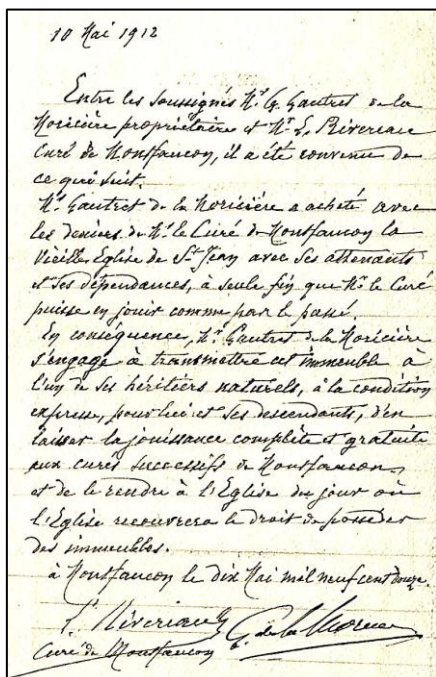 10 Mai 1912
Entre les soussignés Mr G. Gautret de la
Moricière propriétaire et Mr L. Rivereau
Curé de Montfaucon, il a été convenu de
ce qui suit.
Mr Gautret de la Moricière a acheté avec
les deniers de Mr le Curé de Montfaucon la
vieille Eglise de St Jean avec ses attenants
et ses dépendances, à seule fin que Mr le Curé
puisse en jouir comme par le passé.
En conséquence, Mr Gautret de la Moricière
s'engage à transmettre cet immeuble à
l'un de ses héritiers naturels, à la condition
expresse, pour lui et ses descendants, d'en
laisser la jouissance complète et gratuite
aux curés successifs de Montfaucon,
et de le rendre à l'Eglise du jour où
l'Eglise recouvrera le droit de posséder
des immeubles.
à Montfaucon le dix Mai mil neuf cent douze.
Rivereau G. de la Moricière
Curé de Montfaucon